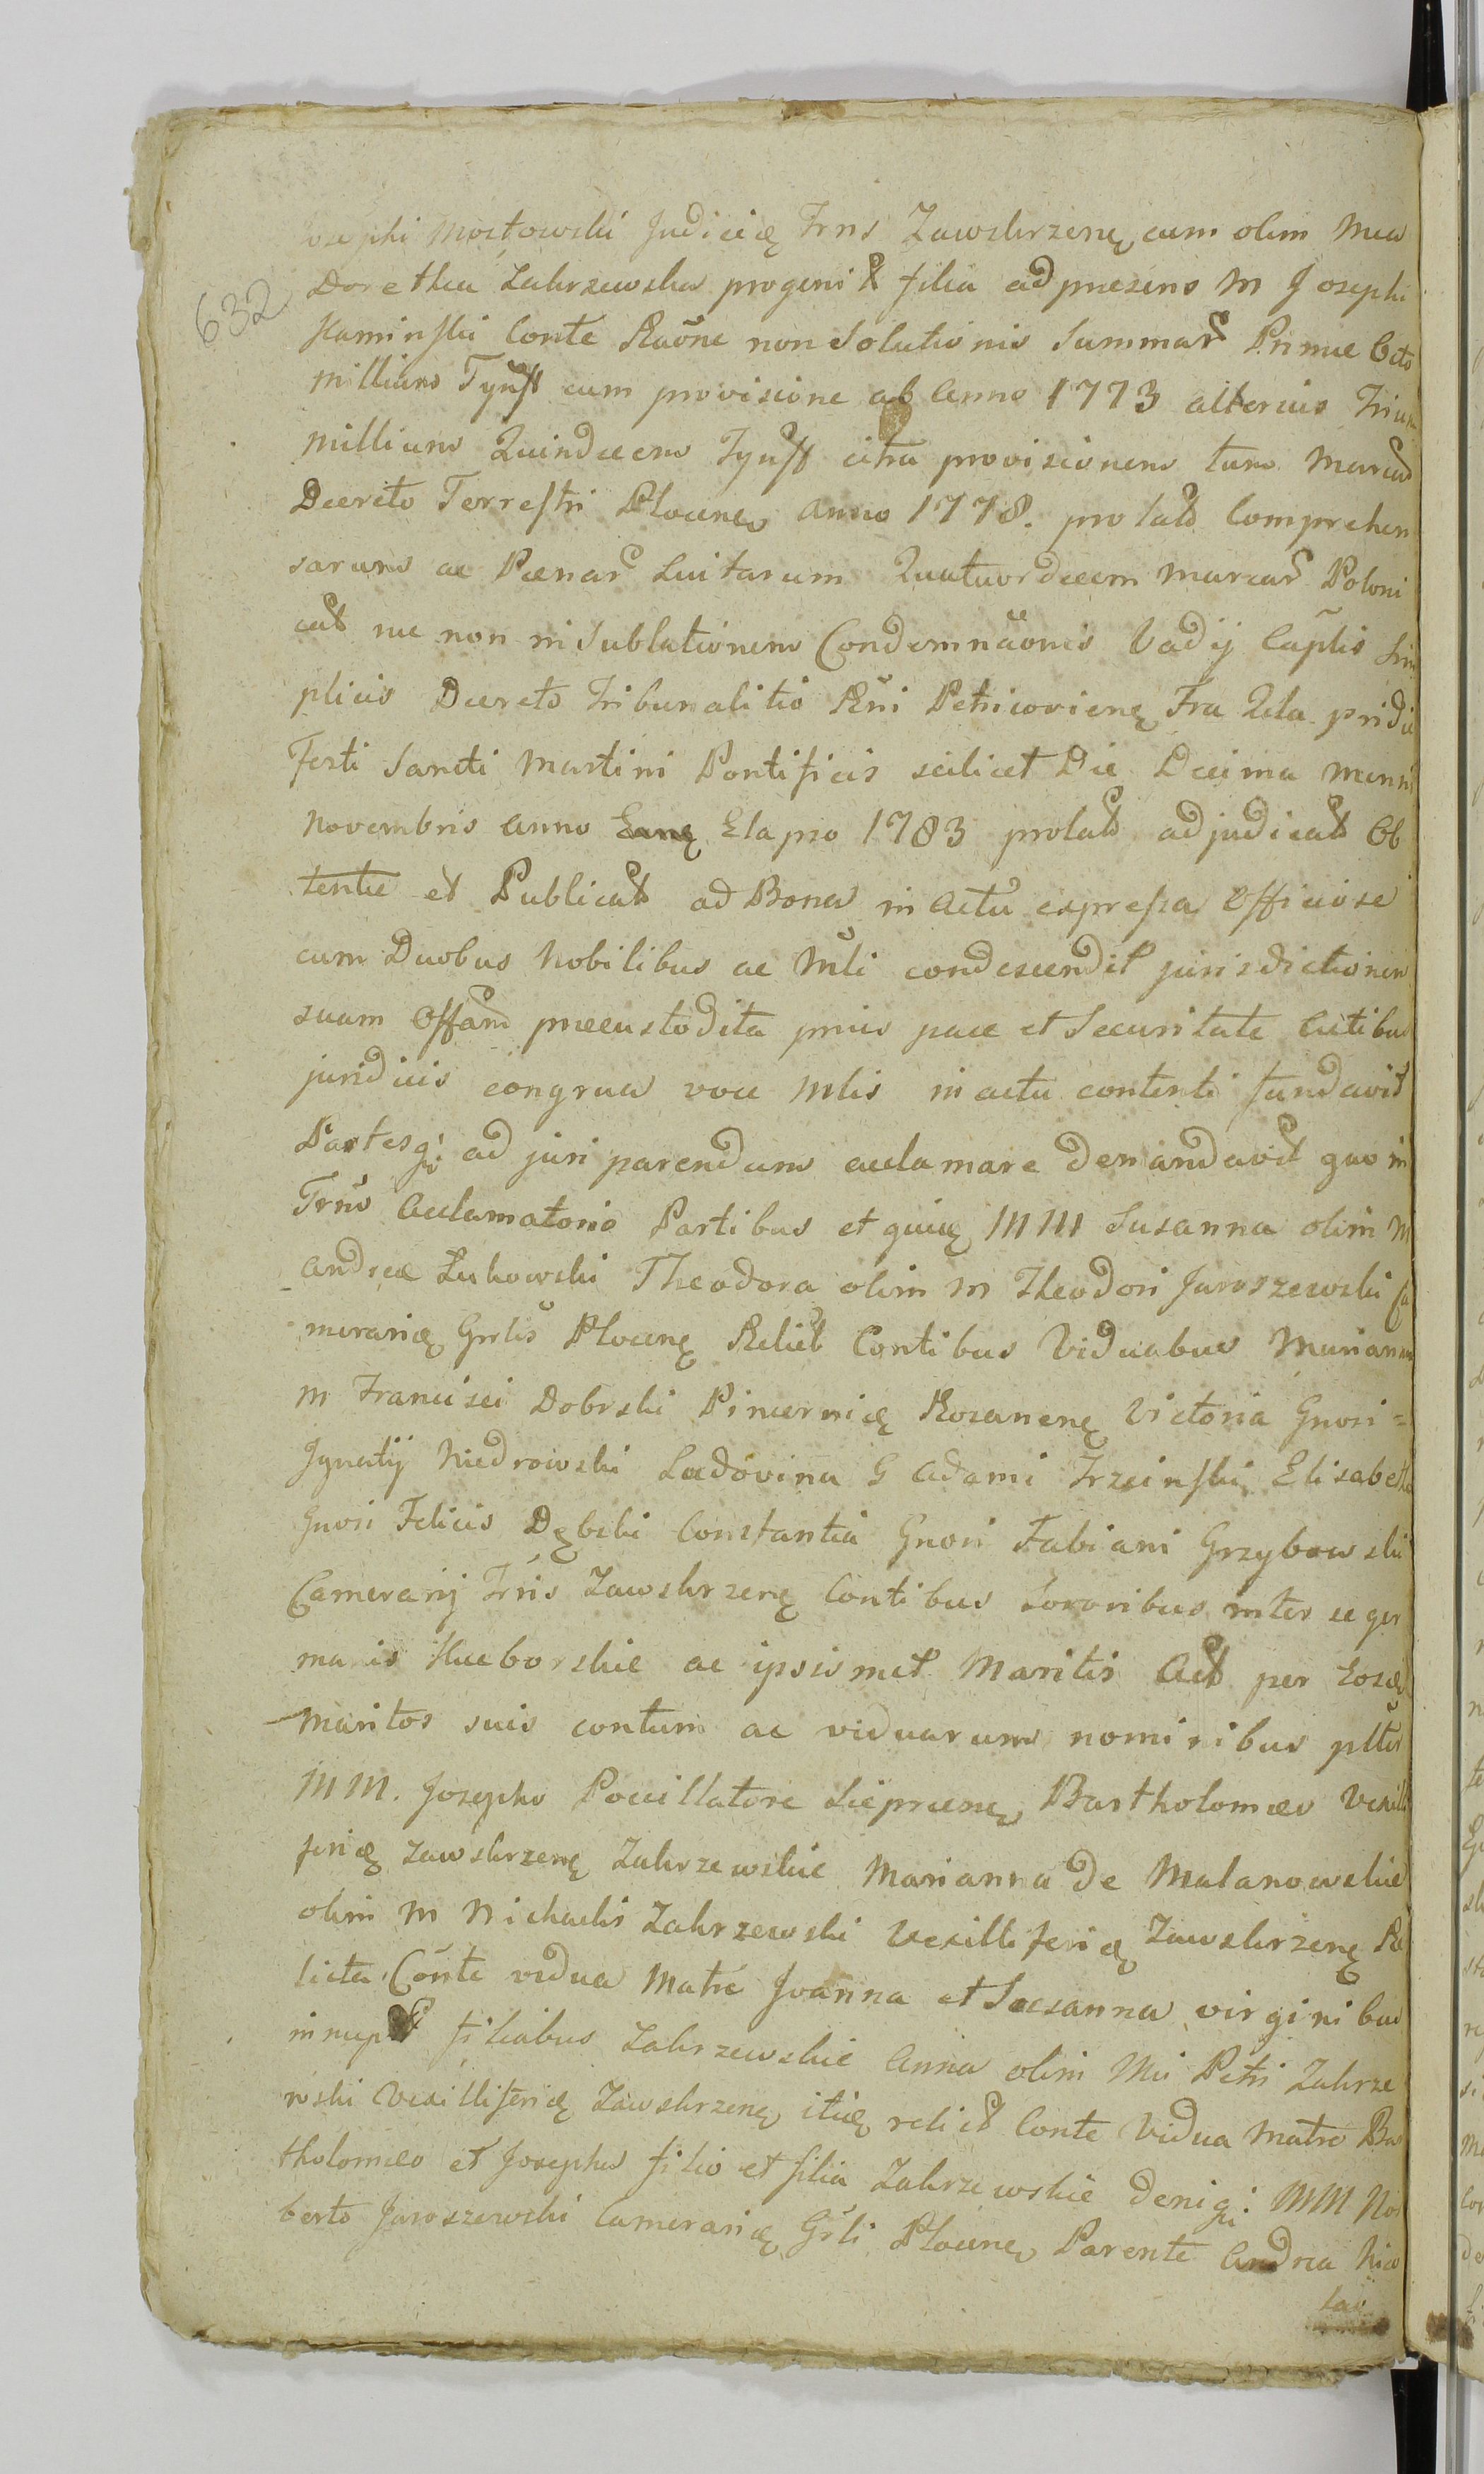 632
Josephi Mostowski Judicię Trris Zawskrzenę cum olim Mca
Dorothea Zakrzewska progenit filia ad praesens M Josephi
Kaminski Conte Raõne non Solutionis Summar Primae Octo
millium Tynff cum provisione ab Anno 1773 alterius Trium
millium Quindecem Tynff citra provisionem tum Marcas
Decreto Terrestri Plocens anno 1778. prolato Comprehen
sarum ac Paenar Luitarum Quatuordecem Marcar Poloni
cat nec non in Sublationem Condemnãonis Vadij Captis Sim
plicis Decreto Tribunalitio Rni Petricovienę Fra 2da pridie
Festi Sancti Martini Pontificis scilicet Die Decima Mensis
Novembris Anno Elapso 1783 prolato adjudicato Ob
tentae et Publicat ad Bona in Actu expressa Officiose
cum Duobus Nobilibus ac Mli condescendit jurisdictionem
suam Offam praecustodita prius pace et Securitate Actibus
juridicis congrua voce Mlis in actu contenti fundavit
Partesq: ad juri parendum acclamare demandavit quo in
Trno Acclamatorio Partibus et quię MM Susanna olim M
Andreae Lukowski Theodora olim M Theodori Jaroszewski Ca
merarię Grlis Plocenę Relict Contibus Viduabus Marianna
M Francisci Dobrski Pincernię Rozanenę Victoria Gnosi =
Ignatij Niedrowski Ludovina G Adami Trzcinski Elisabetha
Gnosi Felicis Dębski Constantia Gnosi Fabiani Grzybowski
Camerarij Trris Zawskrzenę Contibus Sororibus inter se ger
manis Kuczborskie ac ipsismet Maritis Act per eosdę
Maritos suis contum ac viduarum nominibus plter
MM. Josepho Pocillatore Sieprcenę Bartholomaeo Vexilli
ferię Zawskrzenę Zakrzewskie Marianna de Malanowskie
olim M Michaelis Zakrzewski Vexilliferię Zawskrzenę Re
licta Conte vidua Matre Joanna et Susanna virginibus
innupt filiabus Zakrzewskie Anna olim Mci Petri Zakrze
wski Vexilliferię Zawskrzenę itię relict Conte Vidua Matre Bar
tholomaeo et Josepha filio et filia Zakrzewskie deniq: MM Nor
berto Jaroszewski Camerarię Grli Plocens Parente Andrea Nico
lao